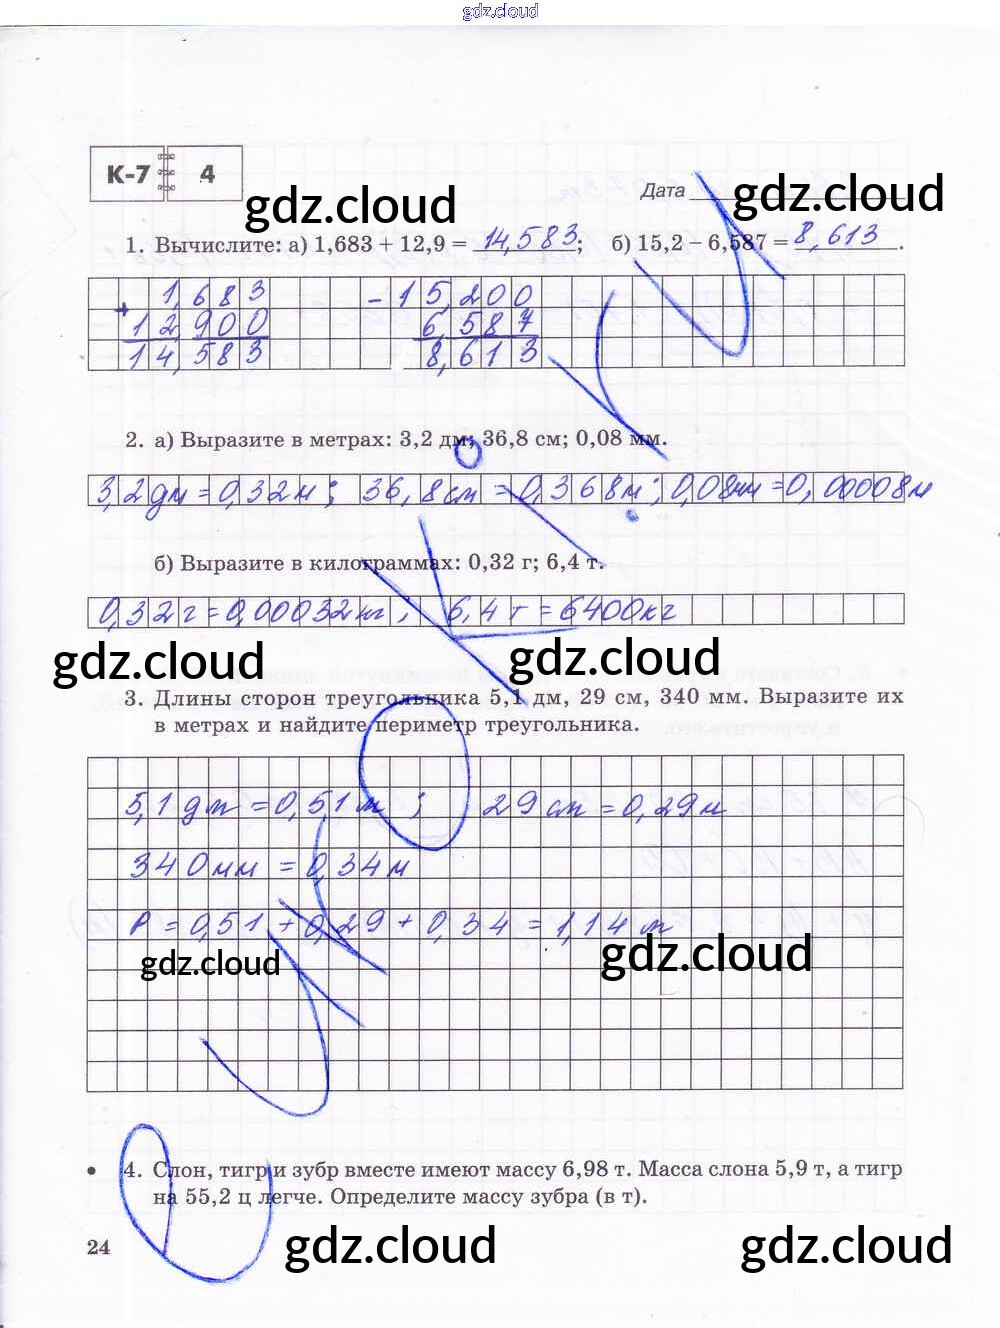 gdz.cloud
К-7 4
gdz.cloud
Дата
gdz.cloud
1. Вычислите: а) 1,683 + 12,9 = 14,583; б) 15,2 – 6,587 = 8,613.
+ 1,683 - 15,200
12,900 6,587
14,583 8,613
2. а) Выразите в метрах: 3,2 дм; 36,8 см; 0,08 мм.
3,2дм = 0,32м; 36,8см = 0,368м; 0,08мм = 0,00008м
б) Выразите в килограммах: 0,32 г; 6,4 т.
0,32г = 0,00032кг; 6,4т = 6400кг
gdz.cloud gdz.cloud
3. Длины сторон треугольника 5,1 дм, 29 см, 340 мм. Выразите их
в метрах и найдите периметр треугольника.
5,1дм = 0,51м; 29см = 0,29м
340мм = 0,34м
P = 0,51 + 0,29 + 0,34 = 1,14м
gdz.cloud gdz.cloud
4. Слон, тигр и зубр вместе имеют массу 6,98 т. Масса слона 5,9 т, а тигр
на 55,2 ц легче. Определите массу зубра (в т).
24
gdz.cloud gdz.cloud